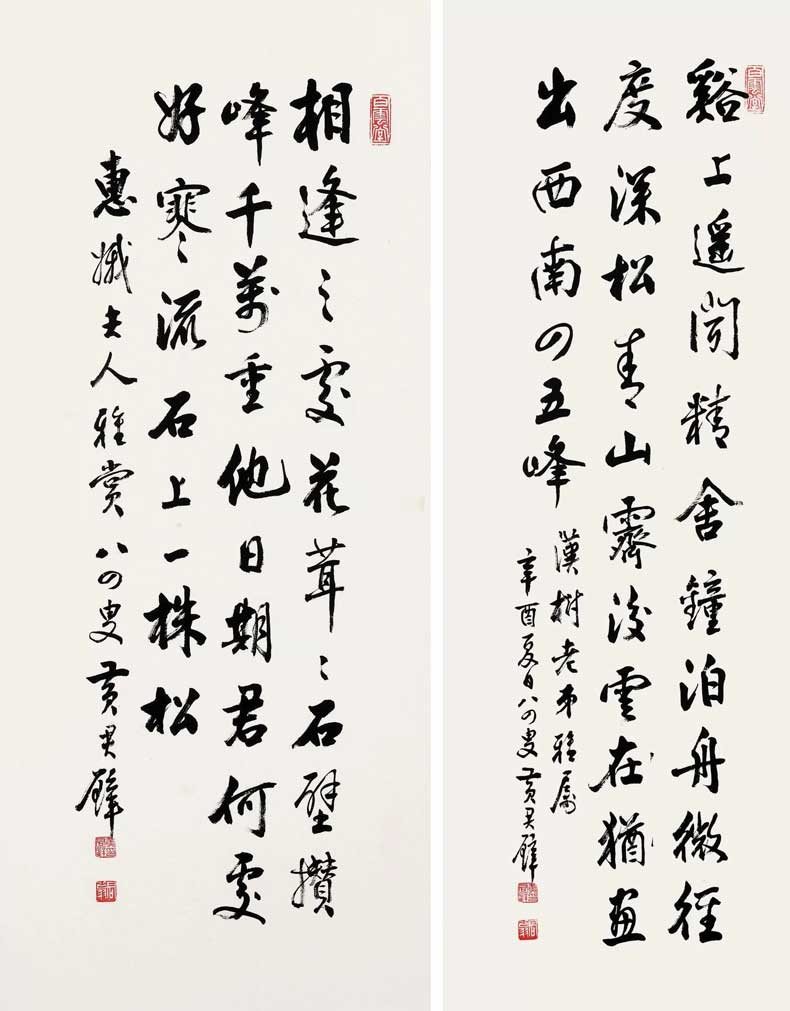 白雲堂
谿上遥聞精舍鐘泊舟微徑
度深松青山霽後雲在猶畫
出西南四五峰
漢樹老弟雅屬
辛酉夏日八四叟黃君璧
白雲堂
相逢之處花茸々石壁攢
峰千萬重他日期君何處
好寒流石上一株松
惠娥夫人雅賞八四叟黃君璧